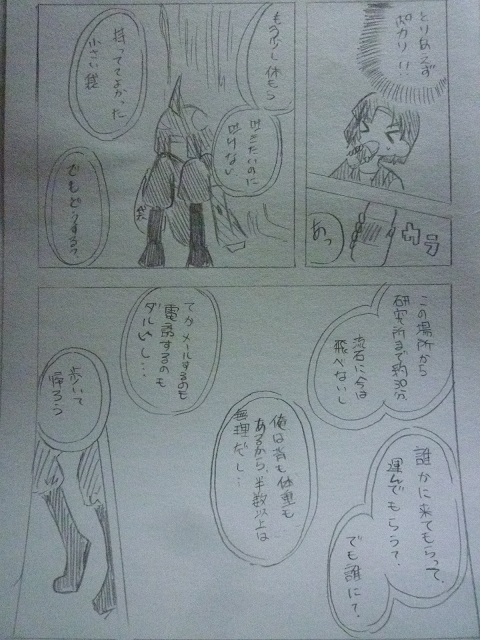 とりあえず
ポカリ!!
カラ
あっ
もう少し休もう
吐きたいのに
吐けない
持っててよかった
小さい袋
袋
でもどうする?
この場所から
研究所まで約30分
流石に今は
飛べないし
誰かに来てもらって、
運んでもらう?
でも誰に?
俺は背も体重も
あるから、半数以上は
無理だし…
てかメールするのも
電話するのも
ダルいし…
歩いて
帰ろう